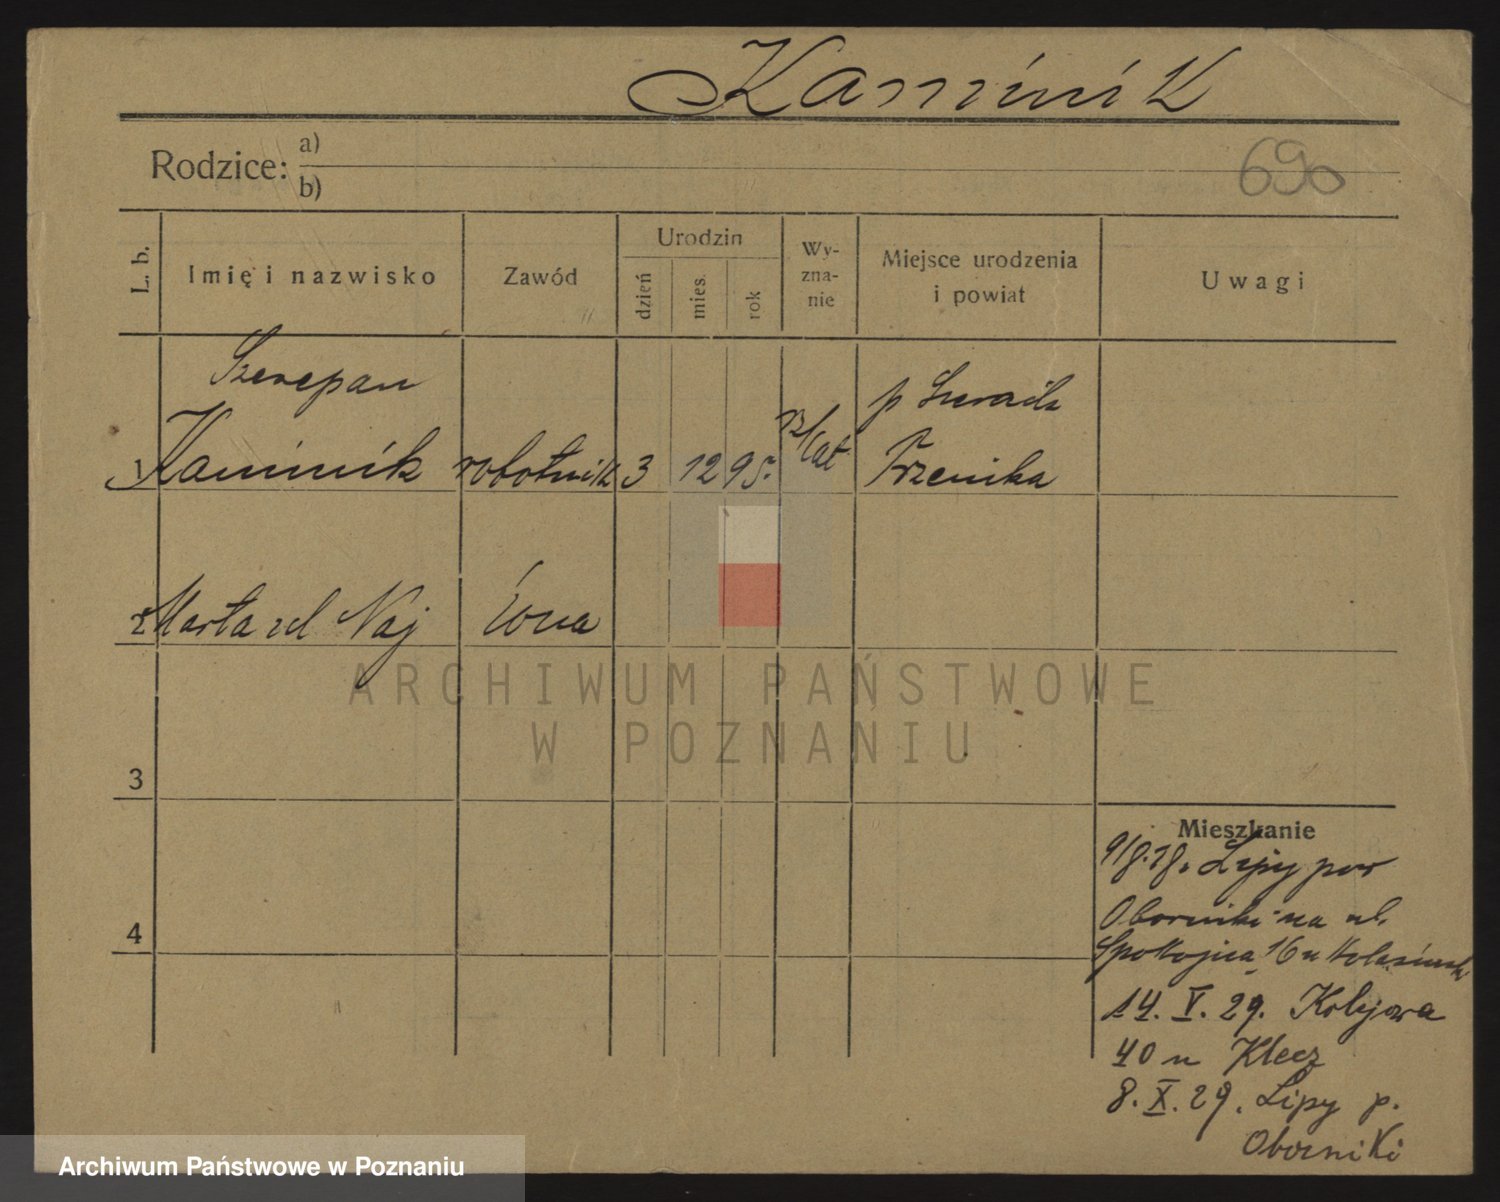 Kaminik
Rodzice: a)
b)
690
L. b.
Imię i nazwisko
Zawód
Urodzin
dzień
mies.
rok
Wy-
zna-
nie
Miejsce urodzenia
i powiat
Uwagi
Szczepan
p Sieradz
1 Kaminik robotnik 3 12 95. rz/kat
2 Marta zd Naj żona
3
4
Mieszkanie
Lipy pow
Oborniki na ul.
Spokojna 16 u
14. V. 29. Kolejowa
40 u Klecz
8. X. 29. Lipy p.
Oborniki
ARCHIWUM PAŃSTWOWE
W POZNANIU
Archiwum Państwowe w Poznaniu